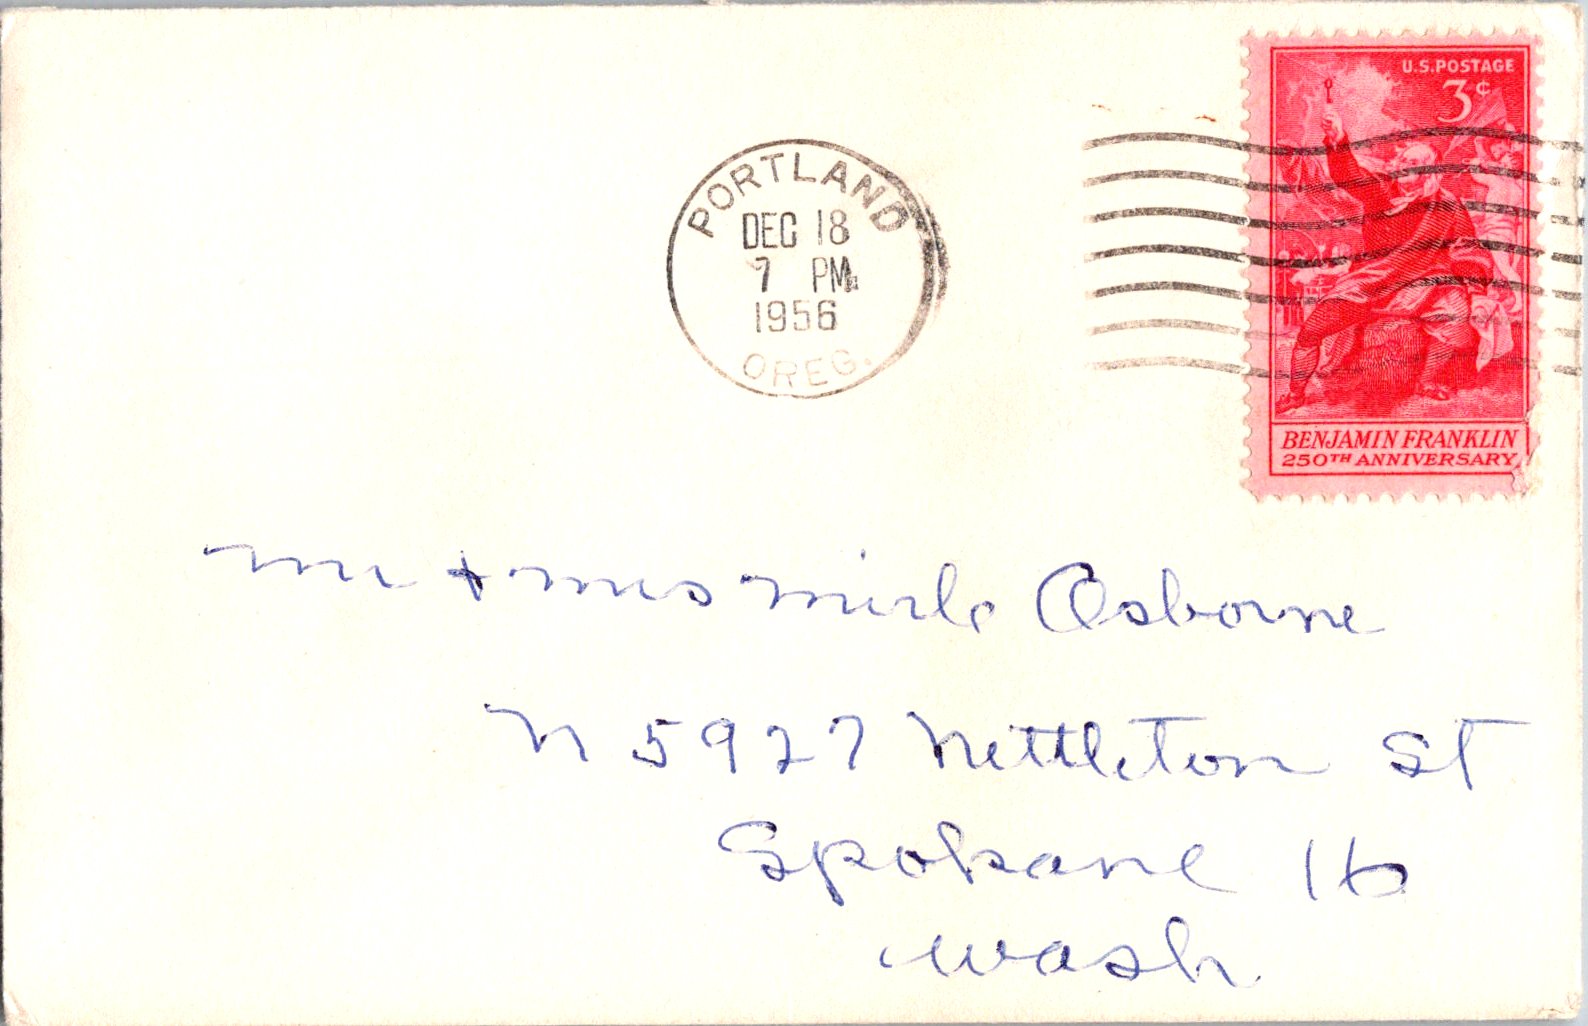 U.S.POSTAGE
3¢
PORTLAND
DEC 18
7 PM
1956
OREG.
BENJAMIN FRANKLIN
250TH ANNIVERSARY
Mr + Mrs Mirle Osborne
N 5927 Nettleton St
Spokane 16
Wash